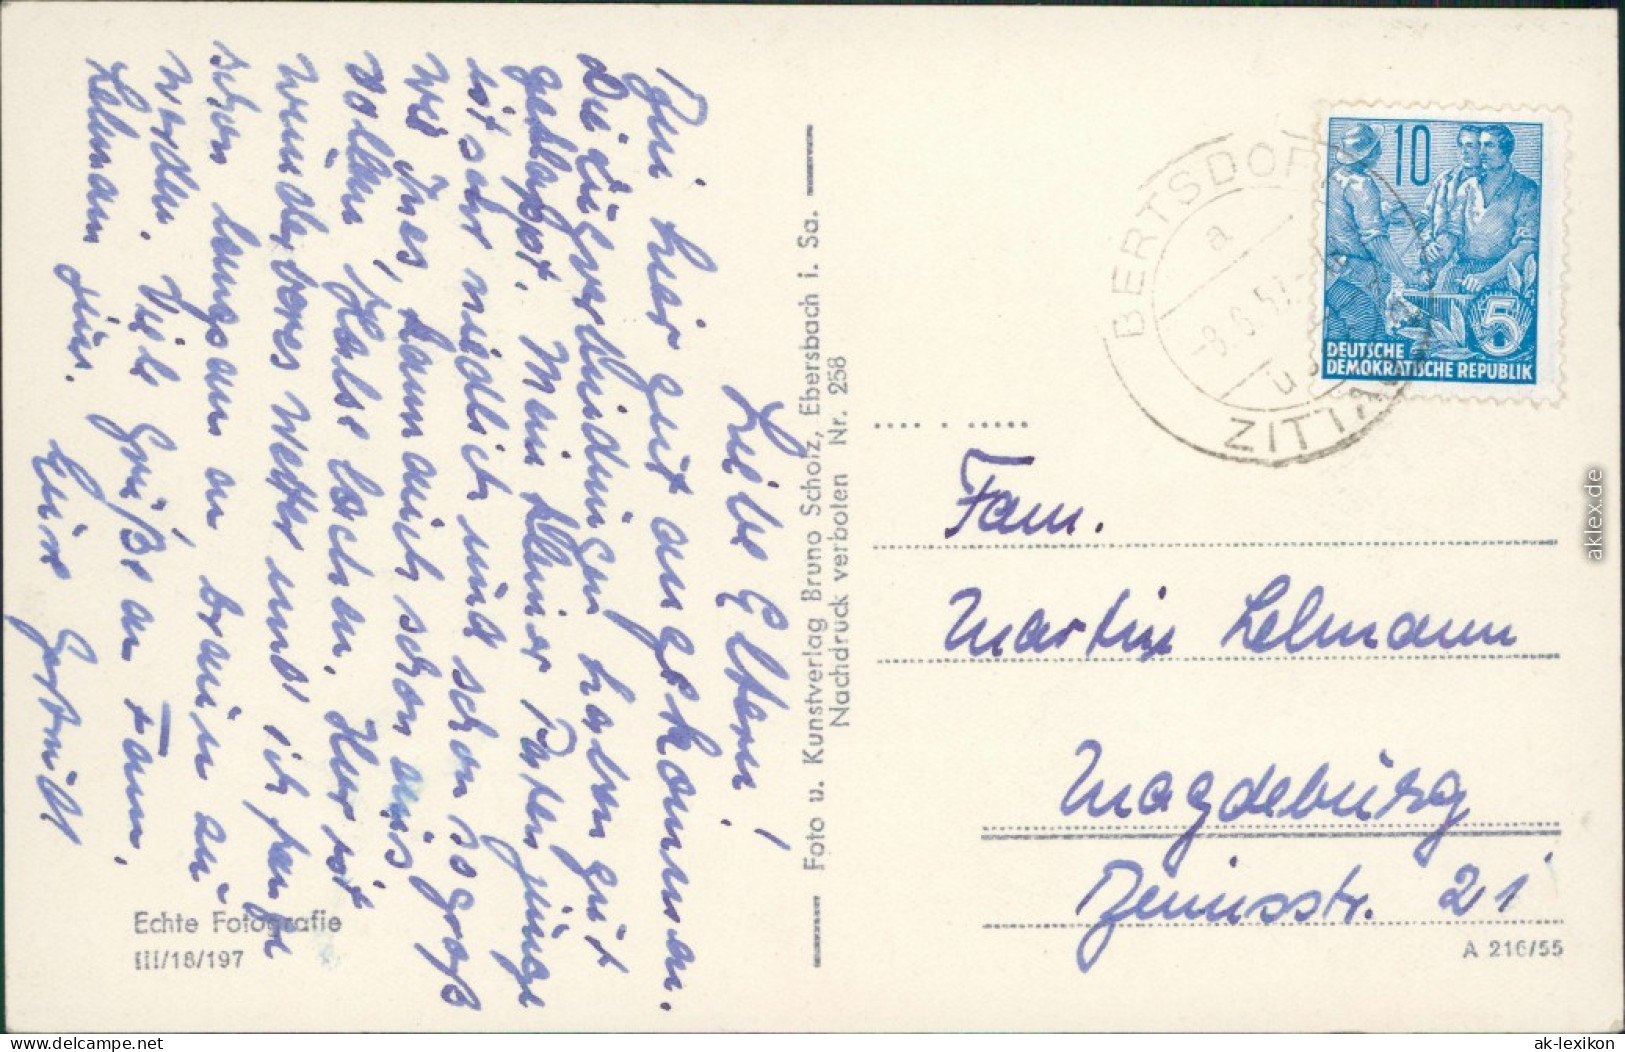 Liebe Eltern!
Bin hier gut angekommen.
Die Zugverbindungen haben gut
geklappt. Mein kleiner Patenjunge
ist sehr niedlich und schon so groß
wie Ines, kann auch schon aus
vollem Halse lachen. Hier ist
wunderbares Wetter und ich fange
schon langsam an braun zu
werden. Viele Grüße an Fam.
Lehmann
Eure Gertrud
Foto u. Kunstverlag Bruno Scholz, Ebersbach i. Sa.
Nachdruck verboten Nr. 258
Echte Fotografie
III/18/197
BERTSDORF
a
-8.6.57
ZITTAU
10
5
DEUTSCHE
DEMOKRATISCHE REPUBLIK
Fam.
Martin Lehmann
Magdeburg
Venusstr. 21
A 216/55
aklex.de
www.delcampe.net
ak-lexikon